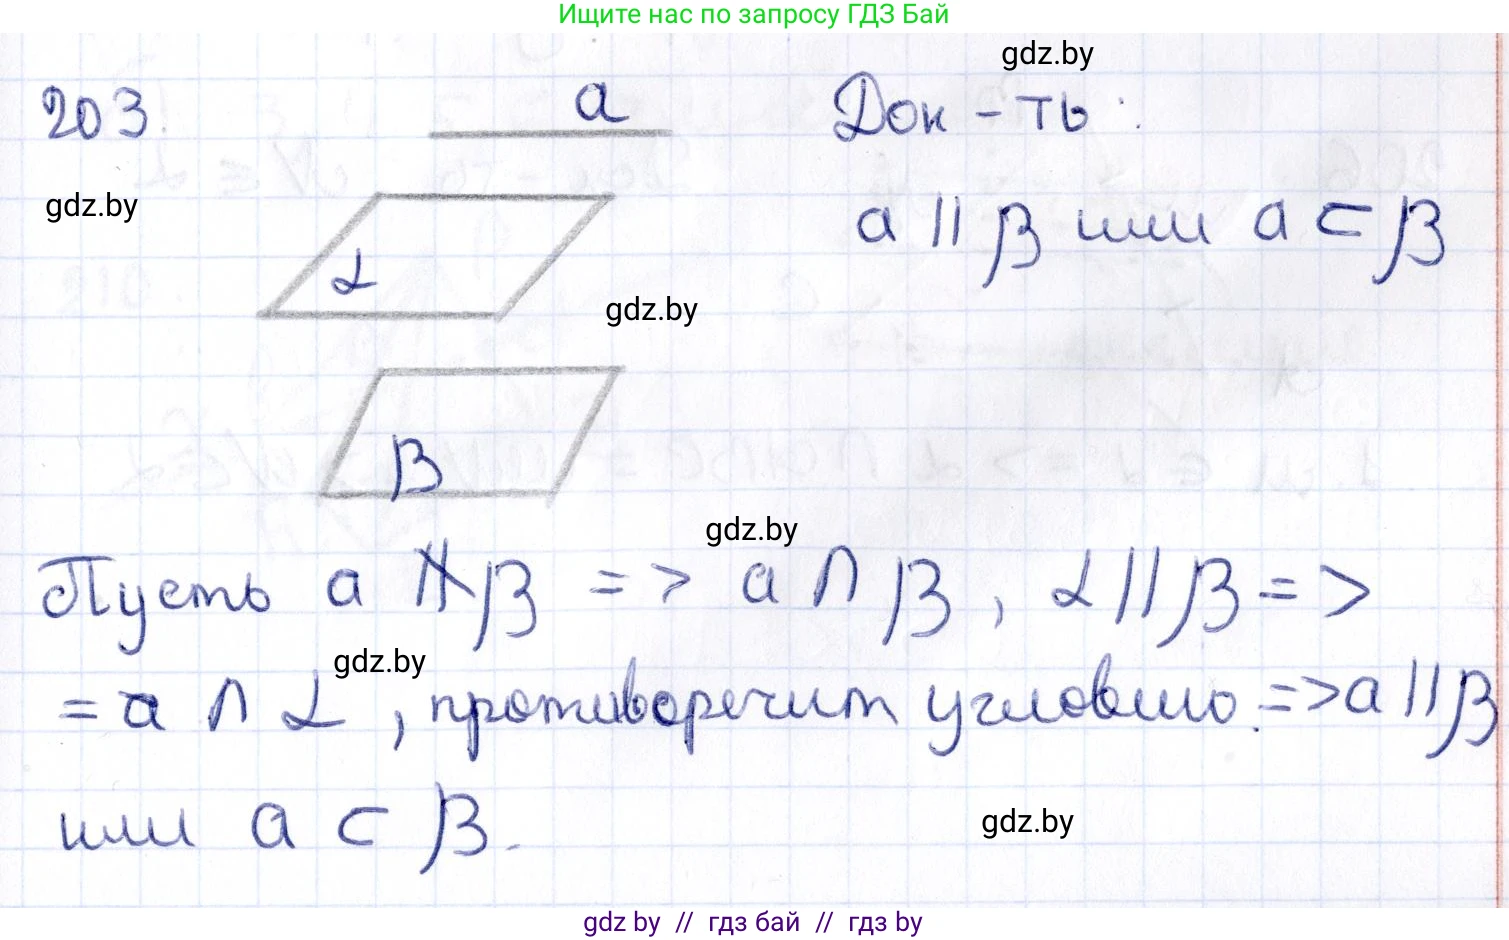 Ищите нас по запросу ГДЗ Бай
gdz.by
203.
a
Док-ть:
gdz.by
a || β или a ⊂ β
α
gdz.by
β
gdz.by
Пусть a ∦ β => a ∩ β, α || β =>
gdz.by
= a ∩ α, противоречит угловию. => a || β
или a ⊂ β.
gdz.by
gdz by // гдз бай // гдз by